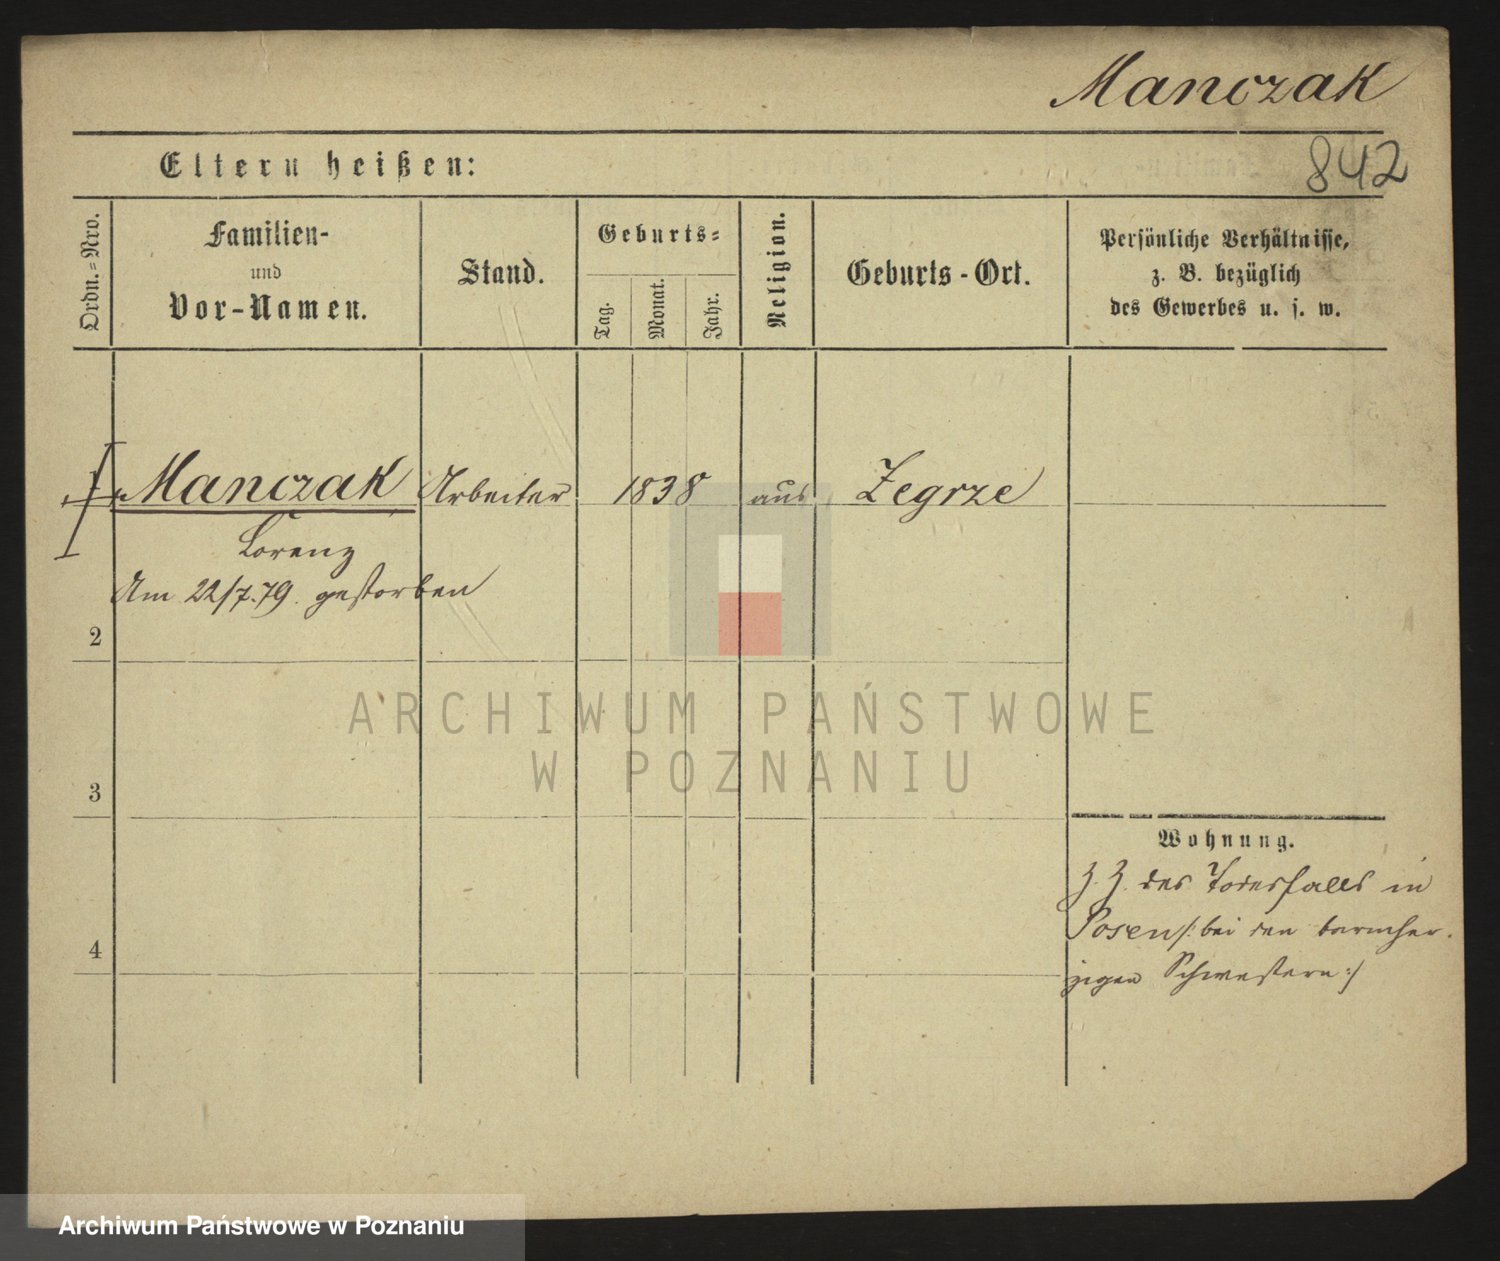 Manczak
842
Eltern heißen:
Ordn.=Nro.
Familien-
und
Vor-Namen.
Stand.
Geburts=
Tag.
Monat.
Jahr.
Religion.
Geburts-Ort.
Persönliche Verhältnisse,
z. B. bezüglich
des Gewerbes u. s. w.
1 Manczak Arbeiter 1838 aus Zegrze
Lorenz
Am 22/7.79. gestorben
2
3
4
Wohnung.
z. Z. des Todesfalls in
Posen /: bei den barmher-
zigen Schwestern :/
ARCHIWUM PAŃSTWOWE
W POZNANIU
Archiwum Państwowe w Poznaniu